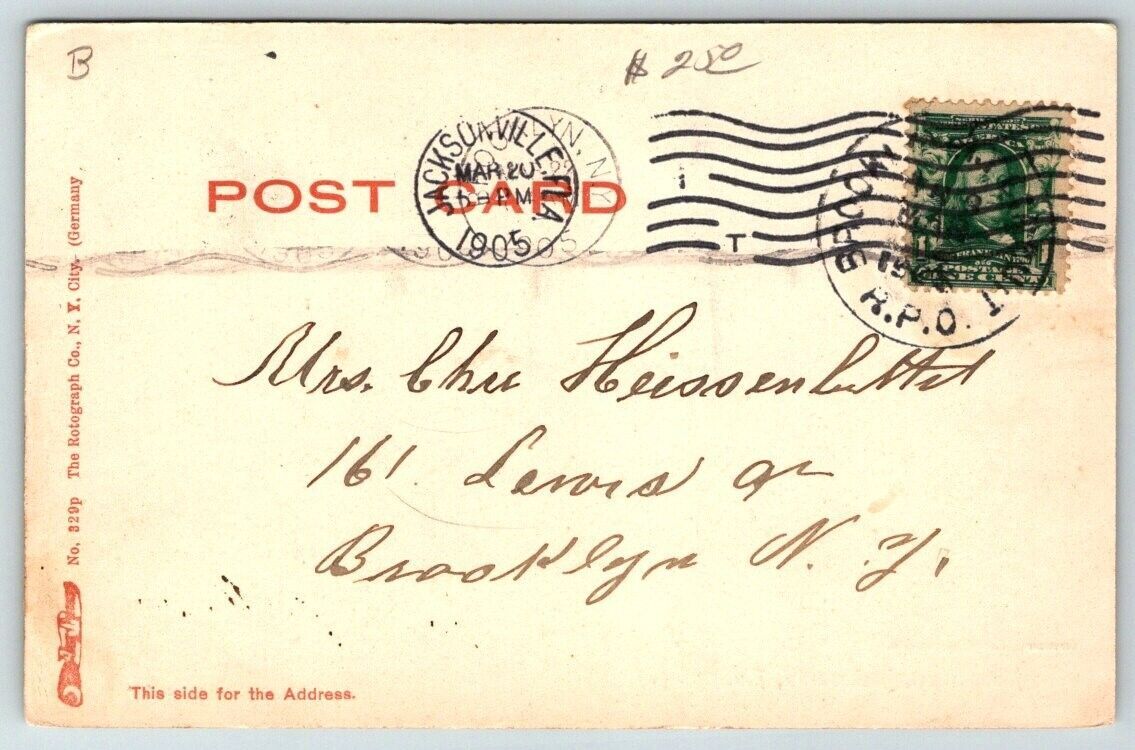 B
$ 2.50
POST CARD
JACKSONVILLE, FLA.
MAR 20
PM
1905
YN, N.Y.
T
R.P.O.
ONE CENT
Mrs. Chu
161 Lewis av
Brooklyn N.Y.
No. 329p The Rotograph Co., N. Y. City. (Germany
This side for the Address.